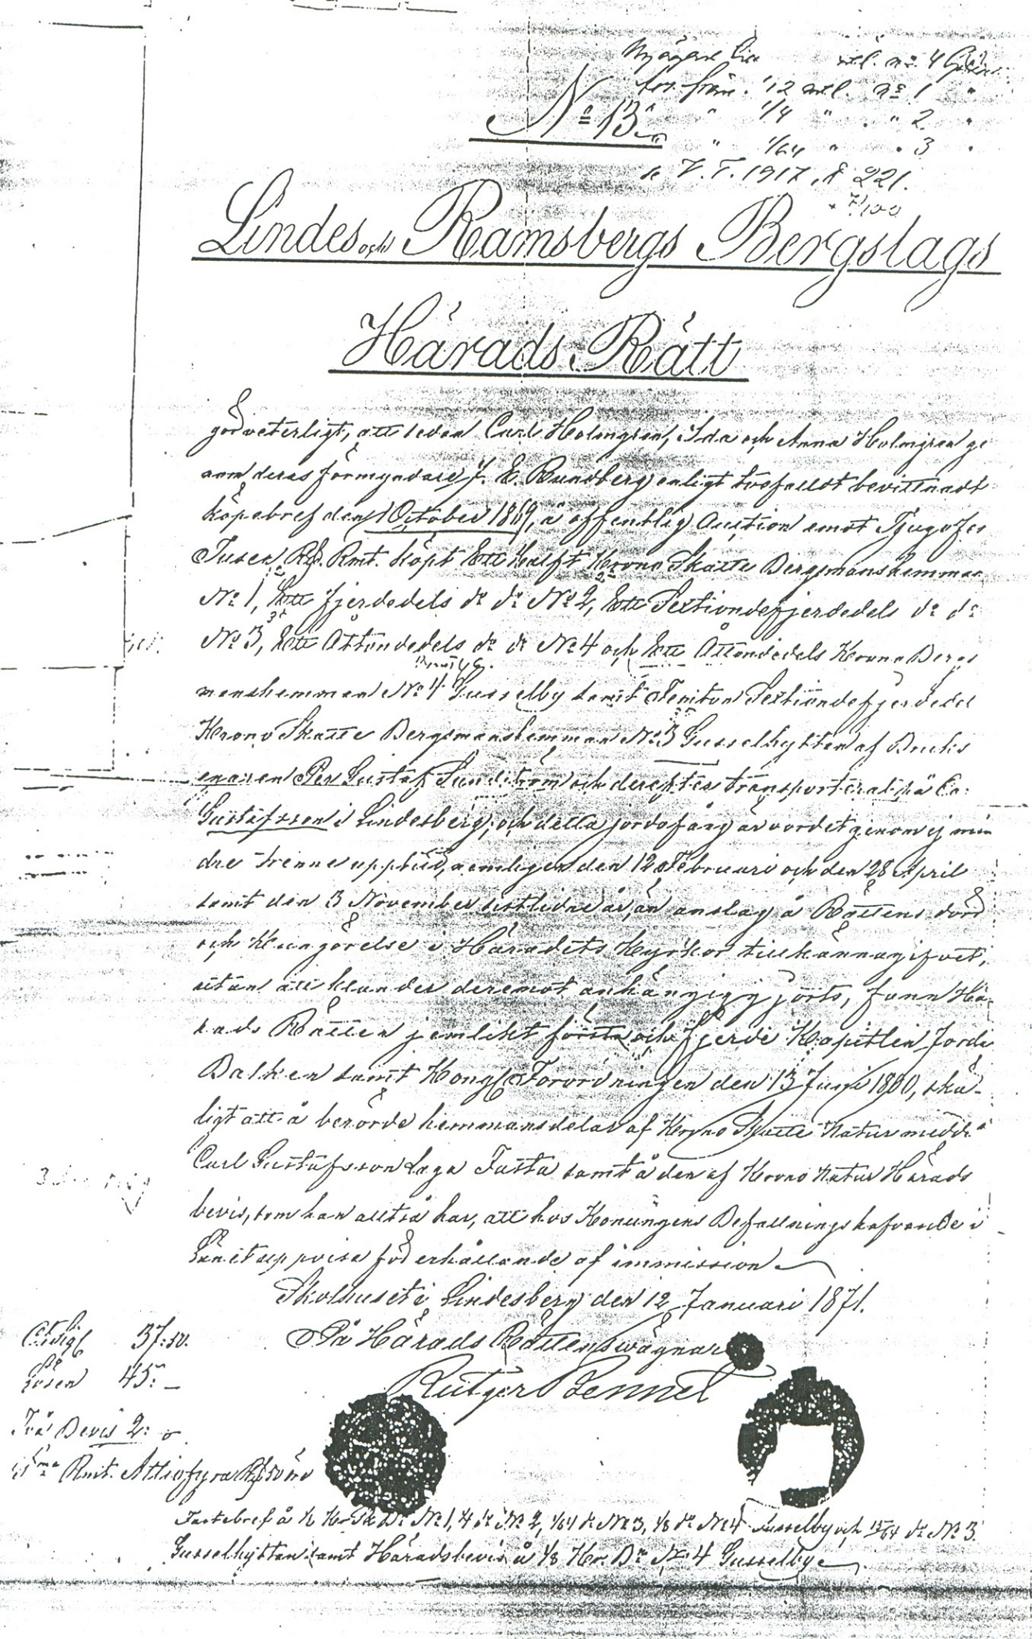 Nyägare Lia mtl. nº 4 Gus
lov. från. 1/2 mtl. nº 1 "
Nº 13. " 1/4 " " 2 "
" 1/64 " " 3 "
se V.T. 1917, § 221.
Lindes och Ramsbergs Bergslags
Härads Rätt
gör veterligt, att sedan Carl Holmgren, Ida och Anna Holmgren ge
nom deras förmyndare J. E. Rundberg enligt företedt bevittnadt
köpebref den 1 October 1869, å offentlig Auction emot Tjugofem
Tusen Rd Rmt. köpt Ett Halft Krono Skatte Bergsmanshemman
Nº 1, Ett fjerdedels dº dº Nº 2, Ett Sextiondefjerdedels dº dº
Nº 3, Ett Åttondedels dº dº Nº 4 och Ett Åttondedels Krono Bergs
manshemman Nº 4 Gusselby samt Femton Sextiondefjerdedel
Krono Skatte Bergsmanshemman Nº 3 Gusselhyttan af Bruks
egaren Per Gustaf Sundström och derefter transporterat på Ca:
Gustafsson i Lindesberg, och detta jordafång är vordet genom ej min
dre trenne uppbud, nemligen den 12 Februari och den 28 April
samt den 3 November sistlidne år, än anslag å Rättens dörr
och Kungörelse i Häradets Kyrkor tillkännagifvet,
utan att klander deremot anhängiggjorts, fann Hä-
rads Rätten jemlikt första och fjerde Kapitlen Jorda
Balken samt Kongl. Förordningen den 13 Juni 1800, skä-
ligt att å berörde hemmansdelar af Krono Skatte Natur medde
Carl Gustafsson Laga Fasta samt å den af Krono Natur Härads
bevis, som han alltså har, att hos Konungens Befallningshafvande i
Länet uppvisa för erhållande af immission
Skolhuset i Lindesberg den 12 Januari 1871.
På Härads Rättens vägnar
Rutger Bennet
37:50.
Lösen 45: —
Två Bevis 2:
Rmt. Åttiofyra Rd 50 öre
Fastebref å 1/2 Kr Sk Dº Nº 1, 1/4 dº Nº 2, 1/64 dº Nº 3, 1/8 dº Nº 4 Gusselby och 15/64 dº Nº 3
Gusselhyttan samt Häradsbevis å 1/8 Kr. Dº Nº 4 Gusselby